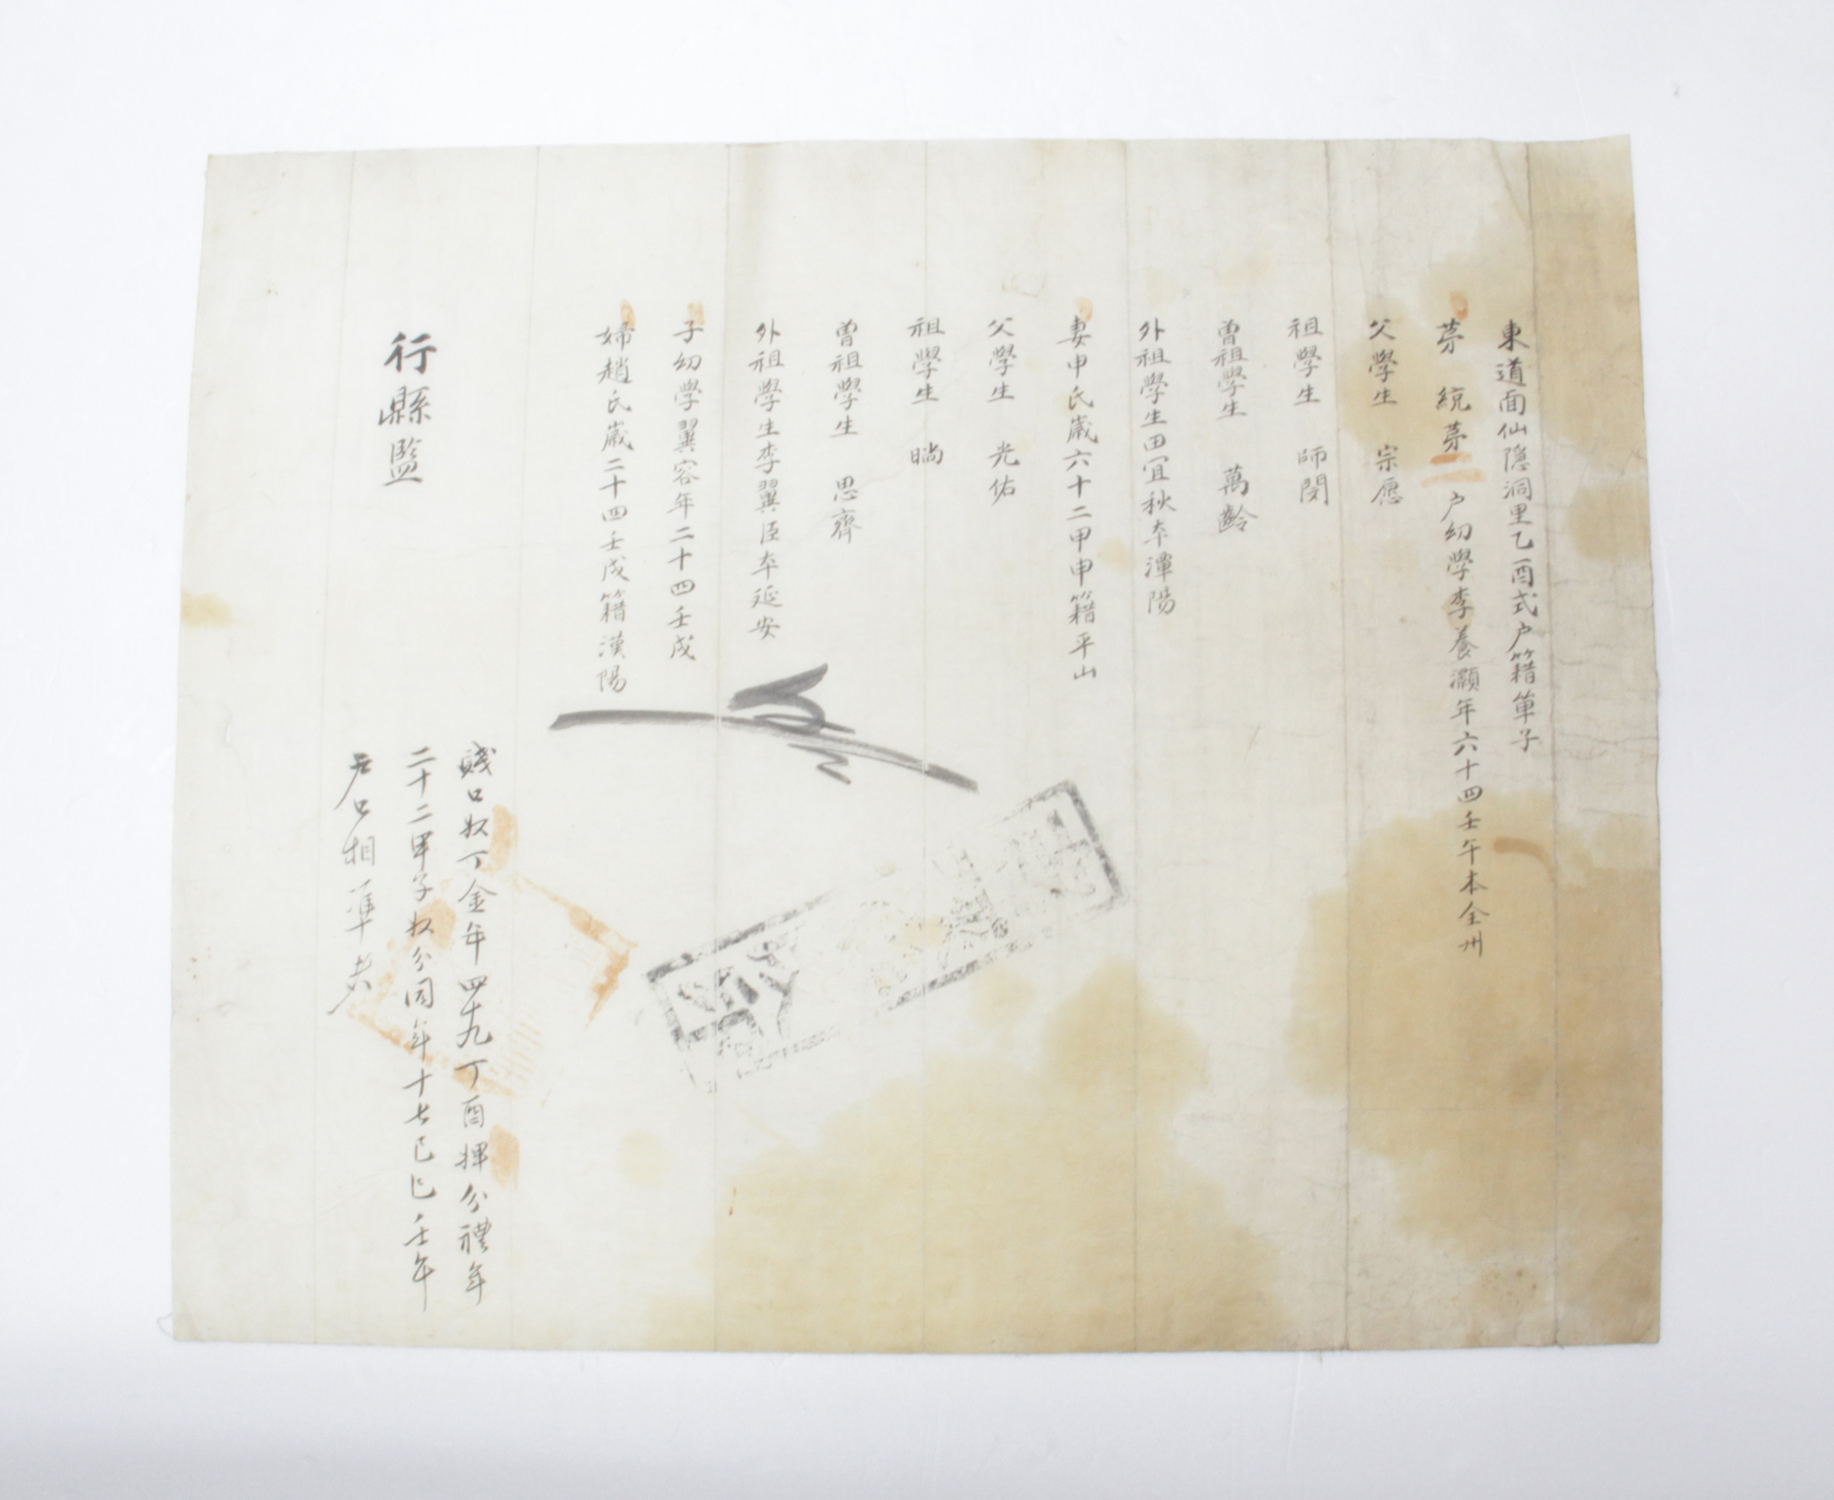 東道面仙隱洞里乙酉式户籍單子
茅 統茅二户幼學李養灝年六十四壬午本全州
父學生 宗愿
祖學生 師閔
曾祖學生 萬齡
外祖學生田宜秋本潭陽
妻申氏歲六十二甲申籍平山
父學生 光佑
祖學生 暠
曾祖學生 思齊
外祖學生李翼臣本延安
子幼學翼容年二十四壬戌
婦趙氏歲二十四壬戌籍漢陽
賤口奴丁金年四十九丁酉婢分禮年
二十二甲子奴分同年十七己巳壬午
户口相準者
行縣監